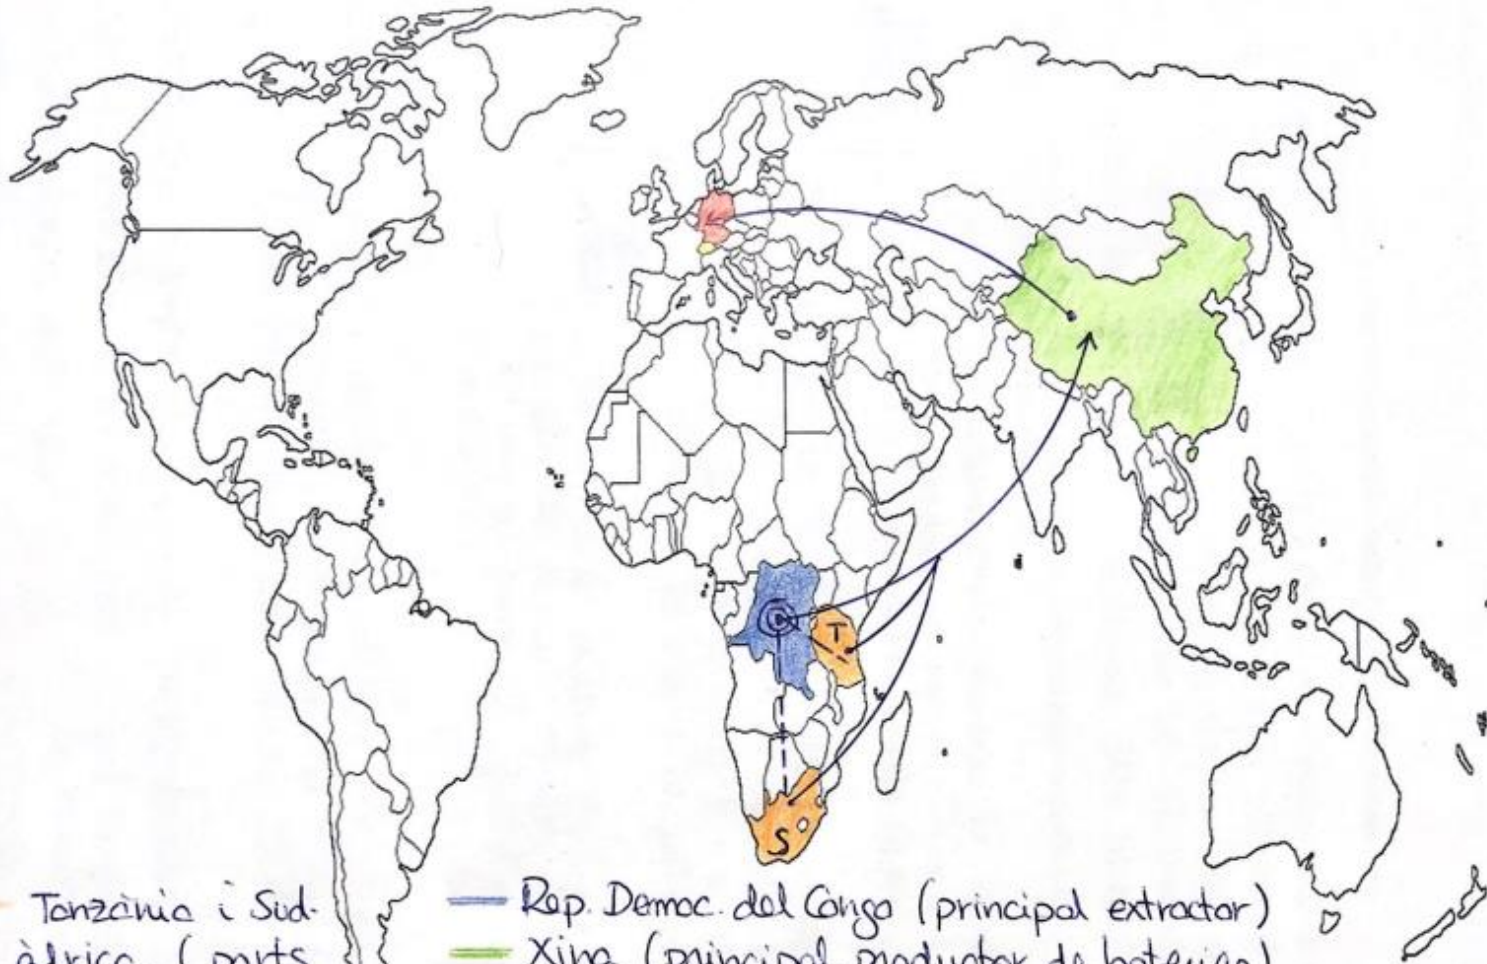 T
S
Tanzània i Sud-
àfrica (ports
Rep. Democ. del Congo (principal extractor)
Xina (principal productor de bateries)